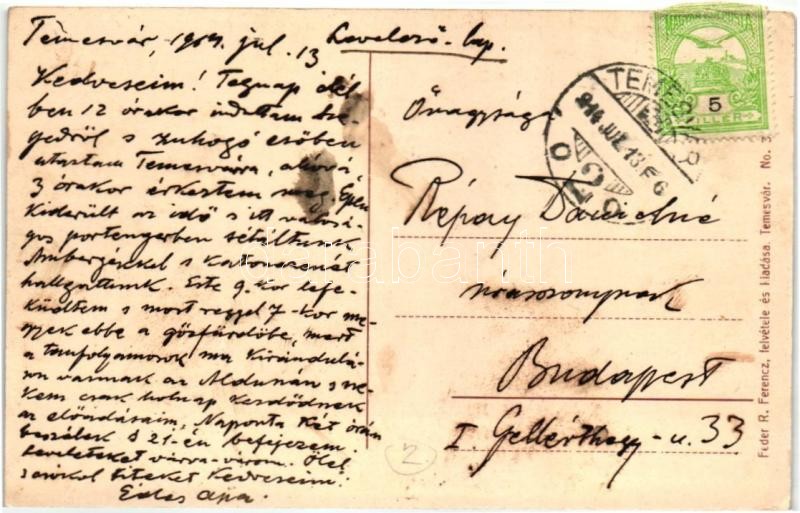 Temesvár, 1914. jul. 13
Levelező-lap.
Kedveseim! Tegnap dél-
ben 12 órakor indultam Sze-
gedről s zuhogó esőben
utaztam Temesvárra, ahová
3 órakor érkeztem meg. Épen
kiderült az idő s itt valósá-
gos portengerben sétáltunk
Ambergerékkel s katonazenét
hallgattunk. Este 9-kor lefe-
küdtem s most reggel 7-kor me-
gyek ebbe a gőzfürdőbe, mert
a tanfolyamosok ma kirándulá-
son vannak az Aldunán s ne-
kem csak holnap kezdődnek
az előadásaim. Naponta két órán
beszélek s 21-én befejezem.
Leveleteket várva-várom. Ölel
s csókol titeket kedveseim:
Édes Apa.
Őnagysága
Répay
úrasszonynak
Budapest
I. Gellérthegy-u. 33
2
TEMESVÁR
914 JUL 13
MAGYAR KIR. POSTA
5
FILLER
Feder R. Ferencz, felvétele és kiadása. Temesvár. No. 3
darabanth